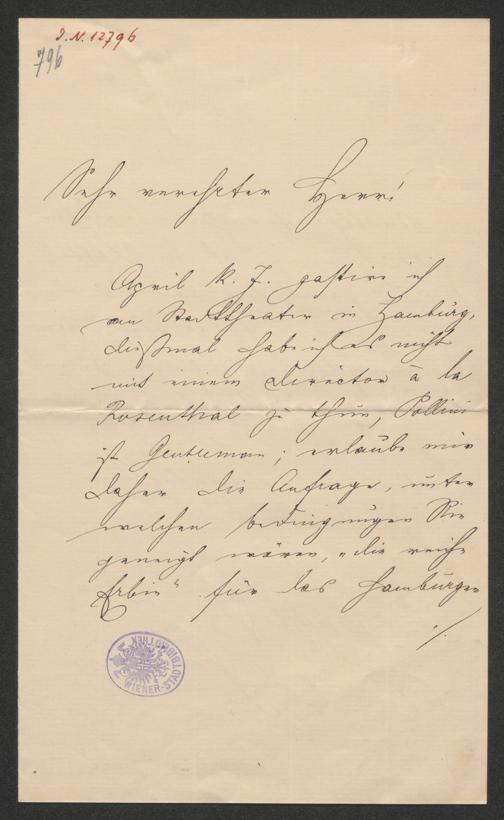 J.N. 12796
796
Sehr verehrter Herr!
April k. J. gastire ich
am Stadttheater in Hamburg,
dießmal habe ich es nicht
mit einem Director à la
Rosenthal zu thun, Pollini
ist Gentleman; erlaube mir
daher die Anfrage, unter
welchen Bedingungen Sie
geneigt wären, „die reiche
Erbin“ für das Hamburger
./.
WIENER-STADT-BIBLIOTHEK